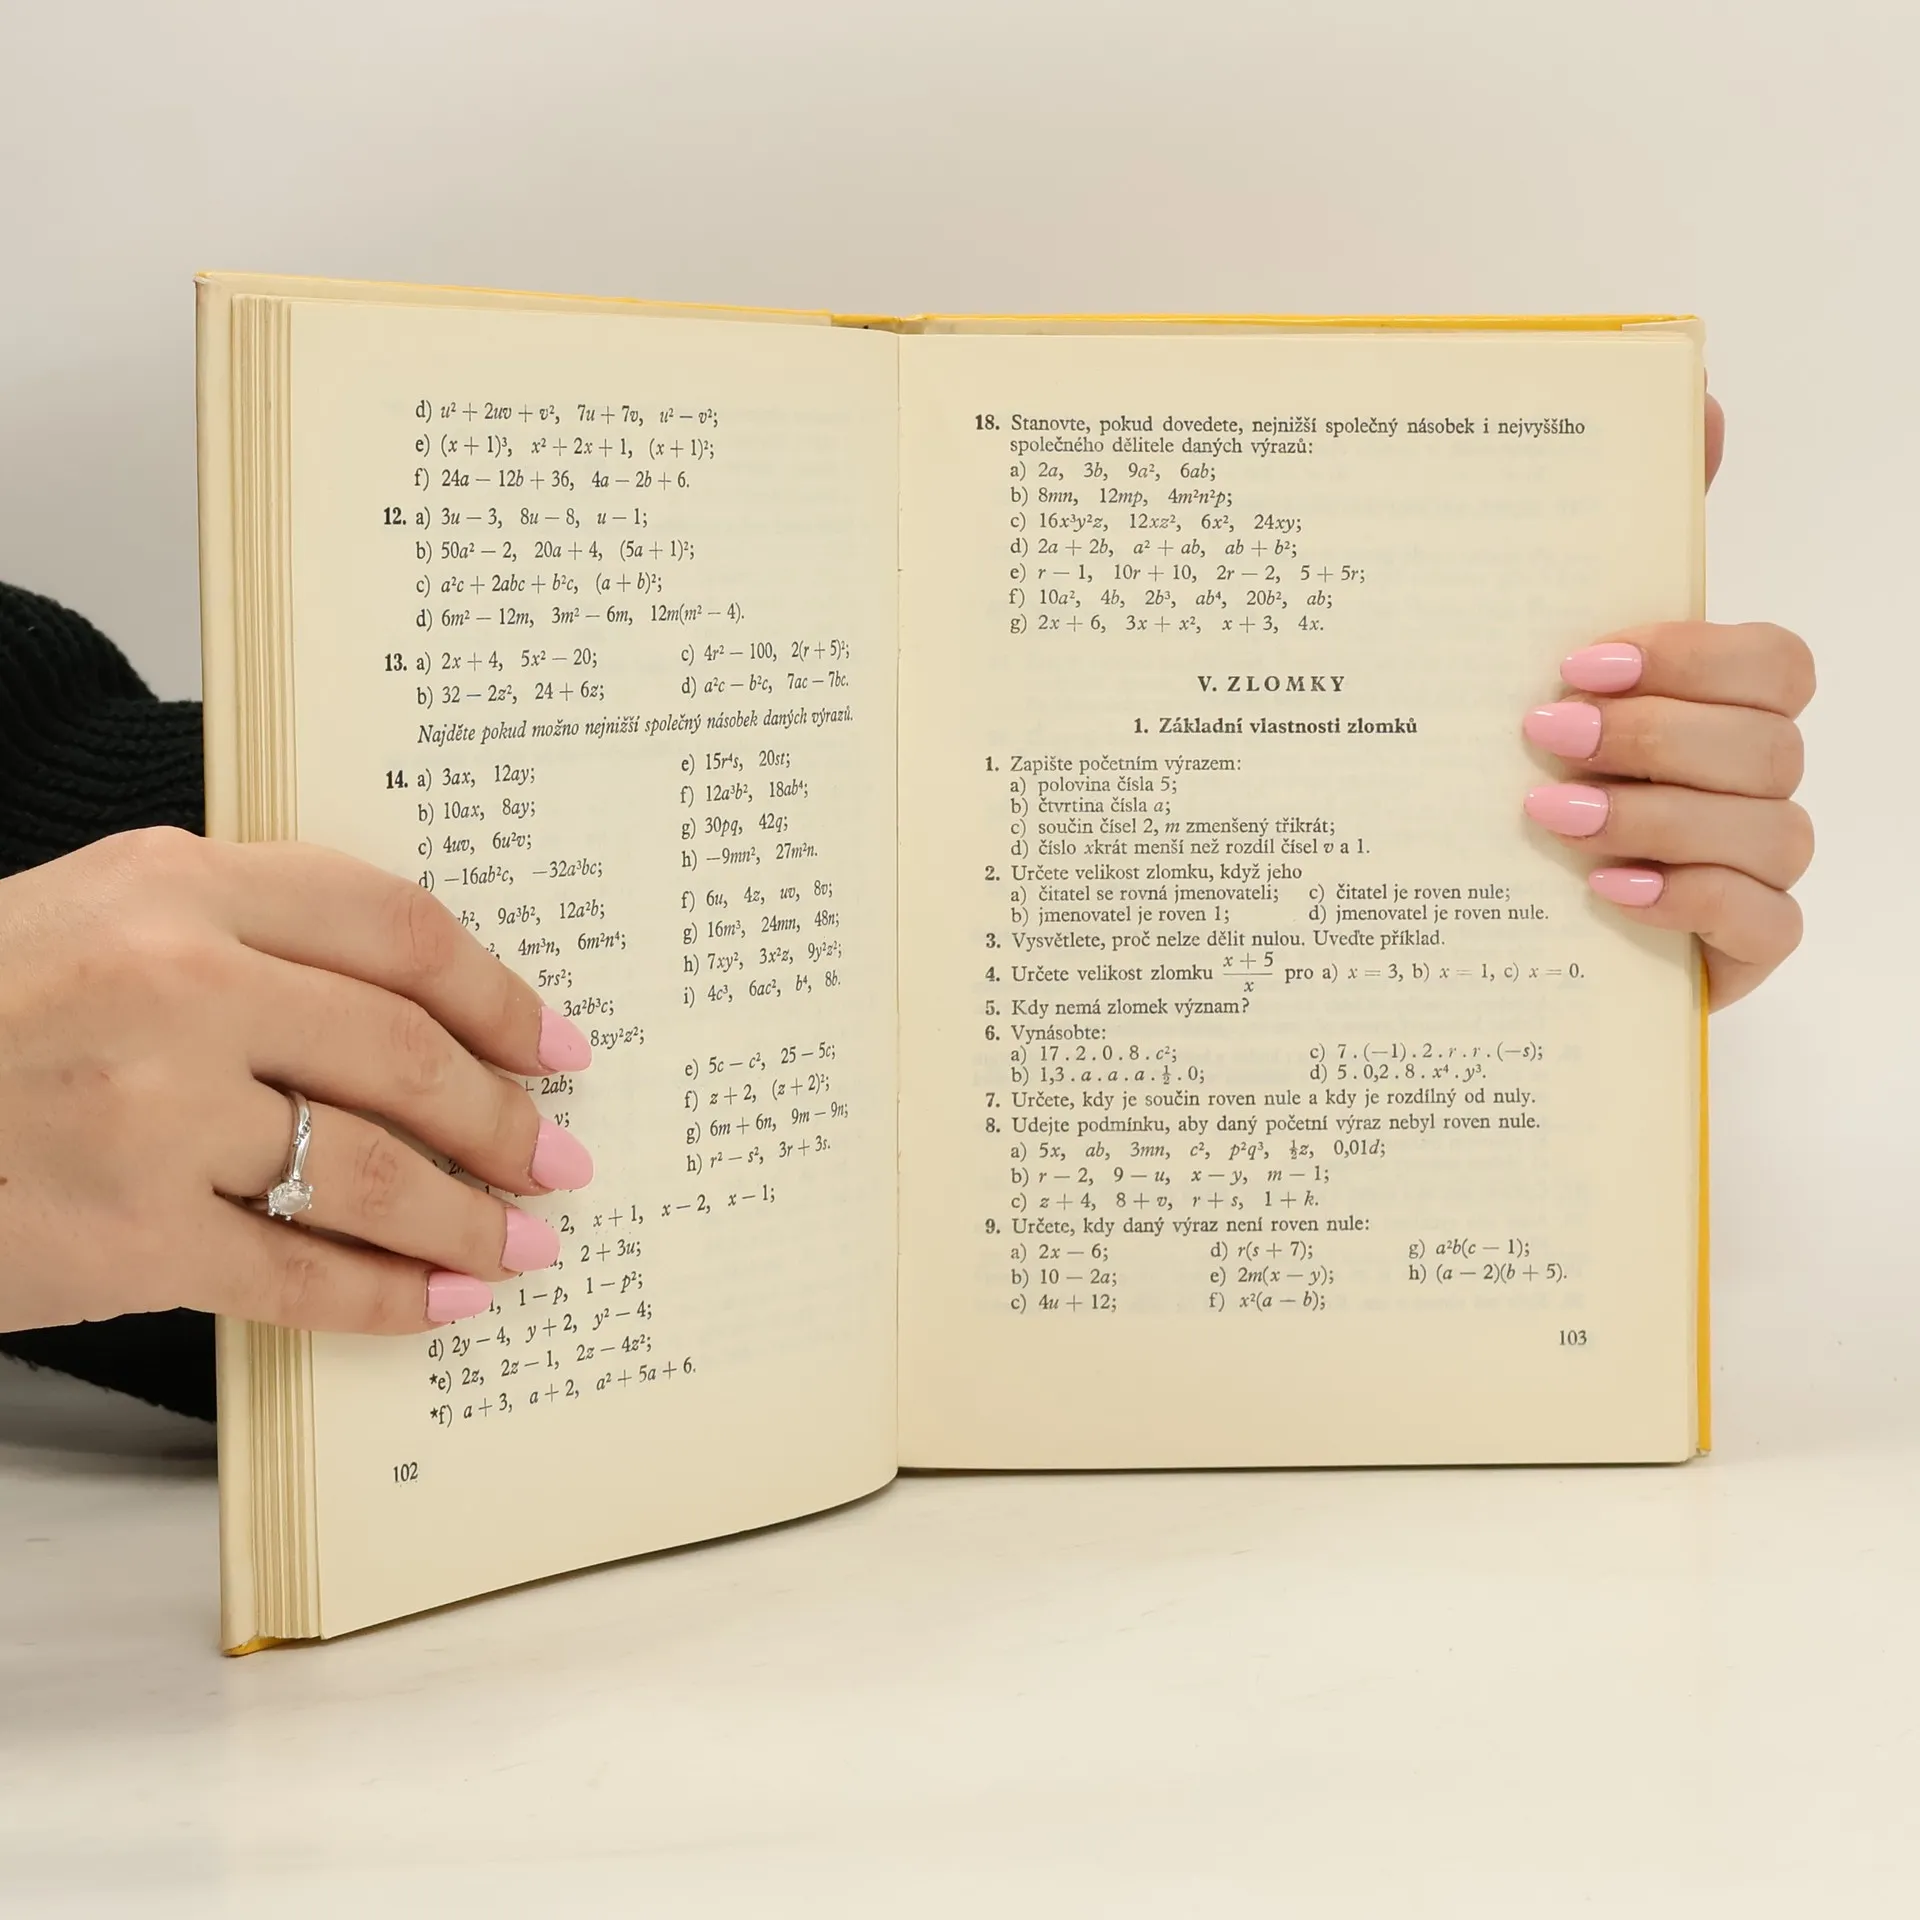 d) u² + 2uv + v², 7u + 7v, u² — v²;
e) (x + 1)³, x² + 2x + 1, (x + 1)²;
f) 24a — 12b + 36, 4a — 2b + 6.
12. a) 3u — 3, 8u — 8, u — 1;
b) 50a² — 2, 20a + 4, (5a + 1)²;
c) a²c + 2abc + b²c, (a + b)²;
d) 6m² — 12m, 3m² — 6m, 12m(m² — 4).
13. a) 2x + 4, 5x² — 20; c) 4r² — 100, 2(r + 5)²;
b) 32 — 2z², 24 + 6z; d) a²c — b²c, 7ac — 7bc.
Najděte pokud možno nejnižší společný násobek daných výrazů.
14. a) 3ax, 12ay; e) 15r⁴s, 20st;
b) 10ax, 8ay; f) 12a³b², 18ab⁴;
c) 4uv, 6u²v; g) 30pq, 42q;
d) —16ab²c, —32a³bc; h) —9mn², 27m²n.
9a³b², 12a²b; f) 6u, 4z, uv, 8v;
4m³n, 6m²n⁴; g) 16m³, 24mn, 48n;
5rs²; h) 7xy², 3x²z, 9y²z²;
3a²b³c; i) 4c³, 6ac², b⁴, 8b.
8xy²z²;
+ 2ab; e) 5c — c², 25 — 5c;
f) z + 2, (z + 2)²;
g) 6m + 6n, 9m — 9n;
h) r² — s², 3r + 3s.
2, x + 1, x — 2, x — 1;
2 + 3u;
1 — p, 1 — p²;
d) 2y — 4, y + 2, y² — 4;
*e) 2z, 2z — 1, 2z — 4z²;
*f) a + 3, a + 2, a² + 5a + 6.
102
18. Stanovte, pokud dovedete, nejnižší společný násobek i nejvyššího
společného dělitele daných výrazů:
a) 2a, 3b, 9a², 6ab;
b) 8mn, 12mp, 4m²n²p;
c) 16x³y²z, 12xz², 6x², 24xy;
d) 2a + 2b, a² + ab, ab + b²;
e) r — 1, 10r + 10, 2r — 2, 5 + 5r;
f) 10a², 4b, 2b³, ab⁴, 20b², ab;
g) 2x + 6, 3x + x², x + 3, 4x.
V. ZLOMKY
1. Základní vlastnosti zlomků
1. Zapište početním výrazem:
a) polovina čísla 5;
b) čtvrtina čísla a;
c) součin čísel 2, m zmenšený třikrát;
d) číslo xkrát menší než rozdíl čísel v a 1.
2. Určete velikost zlomku, když jeho
a) čitatel se rovná jmenovateli; c) čitatel je roven nule;
b) jmenovatel je roven 1; d) jmenovatel je roven nule.
3. Vysvětlete, proč nelze dělit nulou. Uveďte příklad.
4. Určete velikost zlomku (x + 5)/x pro a) x = 3, b) x = 1, c) x = 0.
5. Kdy nemá zlomek význam?
6. Vynásobte:
a) 17 . 2 . 0 . 8 . c²; c) 7 . (—1) . 2 . r . r . (—s);
b) 1,3 . a . a . a . ½ . 0; d) 5 . 0,2 . 8 . x⁴ . y³.
7. Určete, kdy je součin roven nule a kdy je rozdílný od nuly.
8. Udejte podmínku, aby daný početní výraz nebyl roven nule.
a) 5x, ab, 3mn, c², p²q³, ½z, 0,01d;
b) r — 2, 9 — u, x — y, m — 1;
c) z + 4, 8 + v, r + s, 1 + k.
9. Určete, kdy daný výraz není roven nule:
a) 2x — 6; d) r(s + 7); g) a²b(c — 1);
b) 10 — 2a; e) 2m(x — y); h) (a — 2)(b + 5).
c) 4u + 12; f) x²(a — b);
103